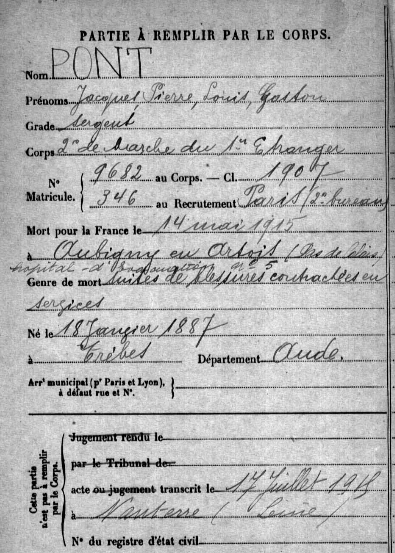 PARTIE À REMPLIR PAR LE CORPS.
Nom PONT
Prénoms Jacques, Pierre, Louis, Gaston
Grade Sergent
Corps 2e de Marche du 1er Etranger
N° Matricule. { 9682 au Corps. — Cl. 1907
346 au Recrutement Paris (2e bureau
Mort pour la France le 14 mai 1915
à Aubigny en Artois (Pas de Calais
hopital d' n° 5
Genre de mort suites de blessures contractées en
services
Né le 18 Janvier 1887
à Trèbes Département Aude.
Arrt municipal (pr Paris et Lyon),
à défaut rue et N°.
Cette partie
n'est pas à remplir
par le Corps.
Jugement rendu le
par le Tribunal de
acte ou jugement transcrit le 17 Juillet 1915
à Nanterre (Seine)
N° du registre d'état civil